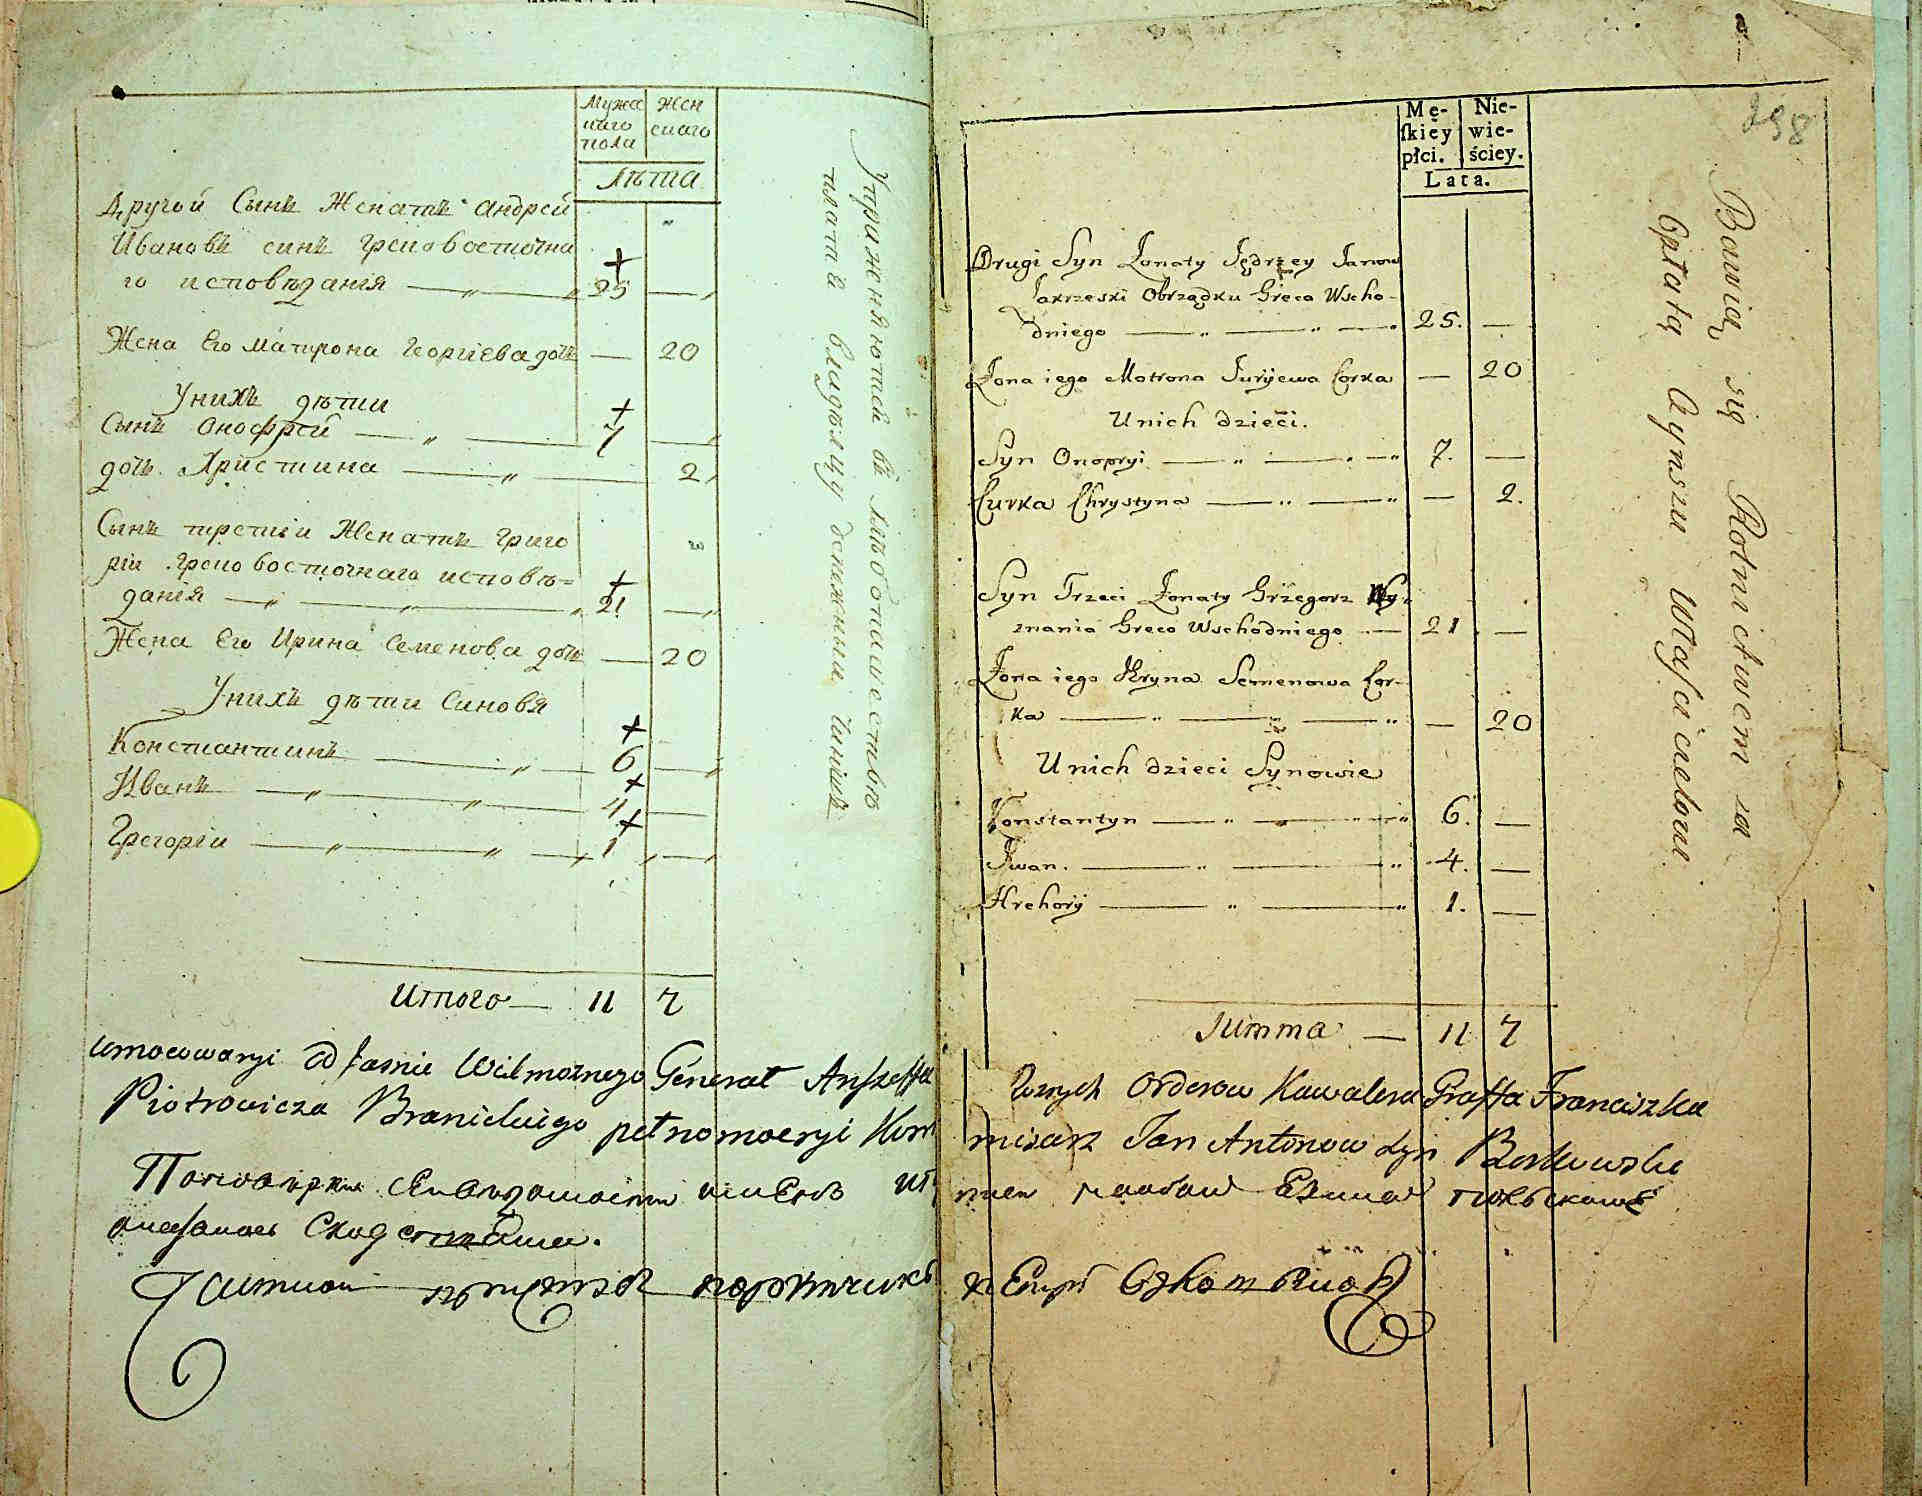 Мужес
каго
пола
Жен
скаго
Лѣта
Другой Сынъ Женатъ Андрей
Ивановъ синъ Грековосточна
го исповѣданія — 25 —
Жена Его Матрона Георгіева дочь — 20
У нихъ дѣти
Сынъ Онофрей — 7 —
дочь Христина — 2
Сынъ третій Женатъ Григо
рій Грековосточнаго исповѣ=
данія — 21 —
Жена Его Ирина Семенова дочь — 20
У нихъ дѣти Синовя
Константинъ — 6 —
Иванъ — 4 —
Грегорій — 1 —
Итого — 11 7
Упражняются въ хлѣбопашествѣ
платѣ владѣлцу денежный чиншъ
Mę-
ſkiey
płci.
Nie-
wie-
ściey.
Lata.
Drugi Syn Żonaty Jędrzey Janow
Zakrzeski Obrządku Greco Wscho-
dniego — 25. —
Żona iego Motrona Juryiewa Corka — 20
U nich dzieci.
Syn Onopryi — 7. —
Curka Chrystyna — 2.
Syn Trzeci Żonaty Grzegorz Wy-
znania Greco Wschodniego — 21 —
Żona iego Kryna Semenowa Cor-
ka — 20
U nich dzieci Synowie
Konstantyn — 6. —
Iwan. — 4. —
Hrehory — 1. —
Summa — 11 7
298
Bawią się Rolnictwem za
Opłatą Czynszu Właścicielowi
Umocowanyi od Jasnie Wielmożnego Generał Anszeffa Roznych Orderow Kawalera Graffa Franciszka
Piotrowicza Branickiego pełnomocnyi Kommisarz Jan Antonow syn Borkowski